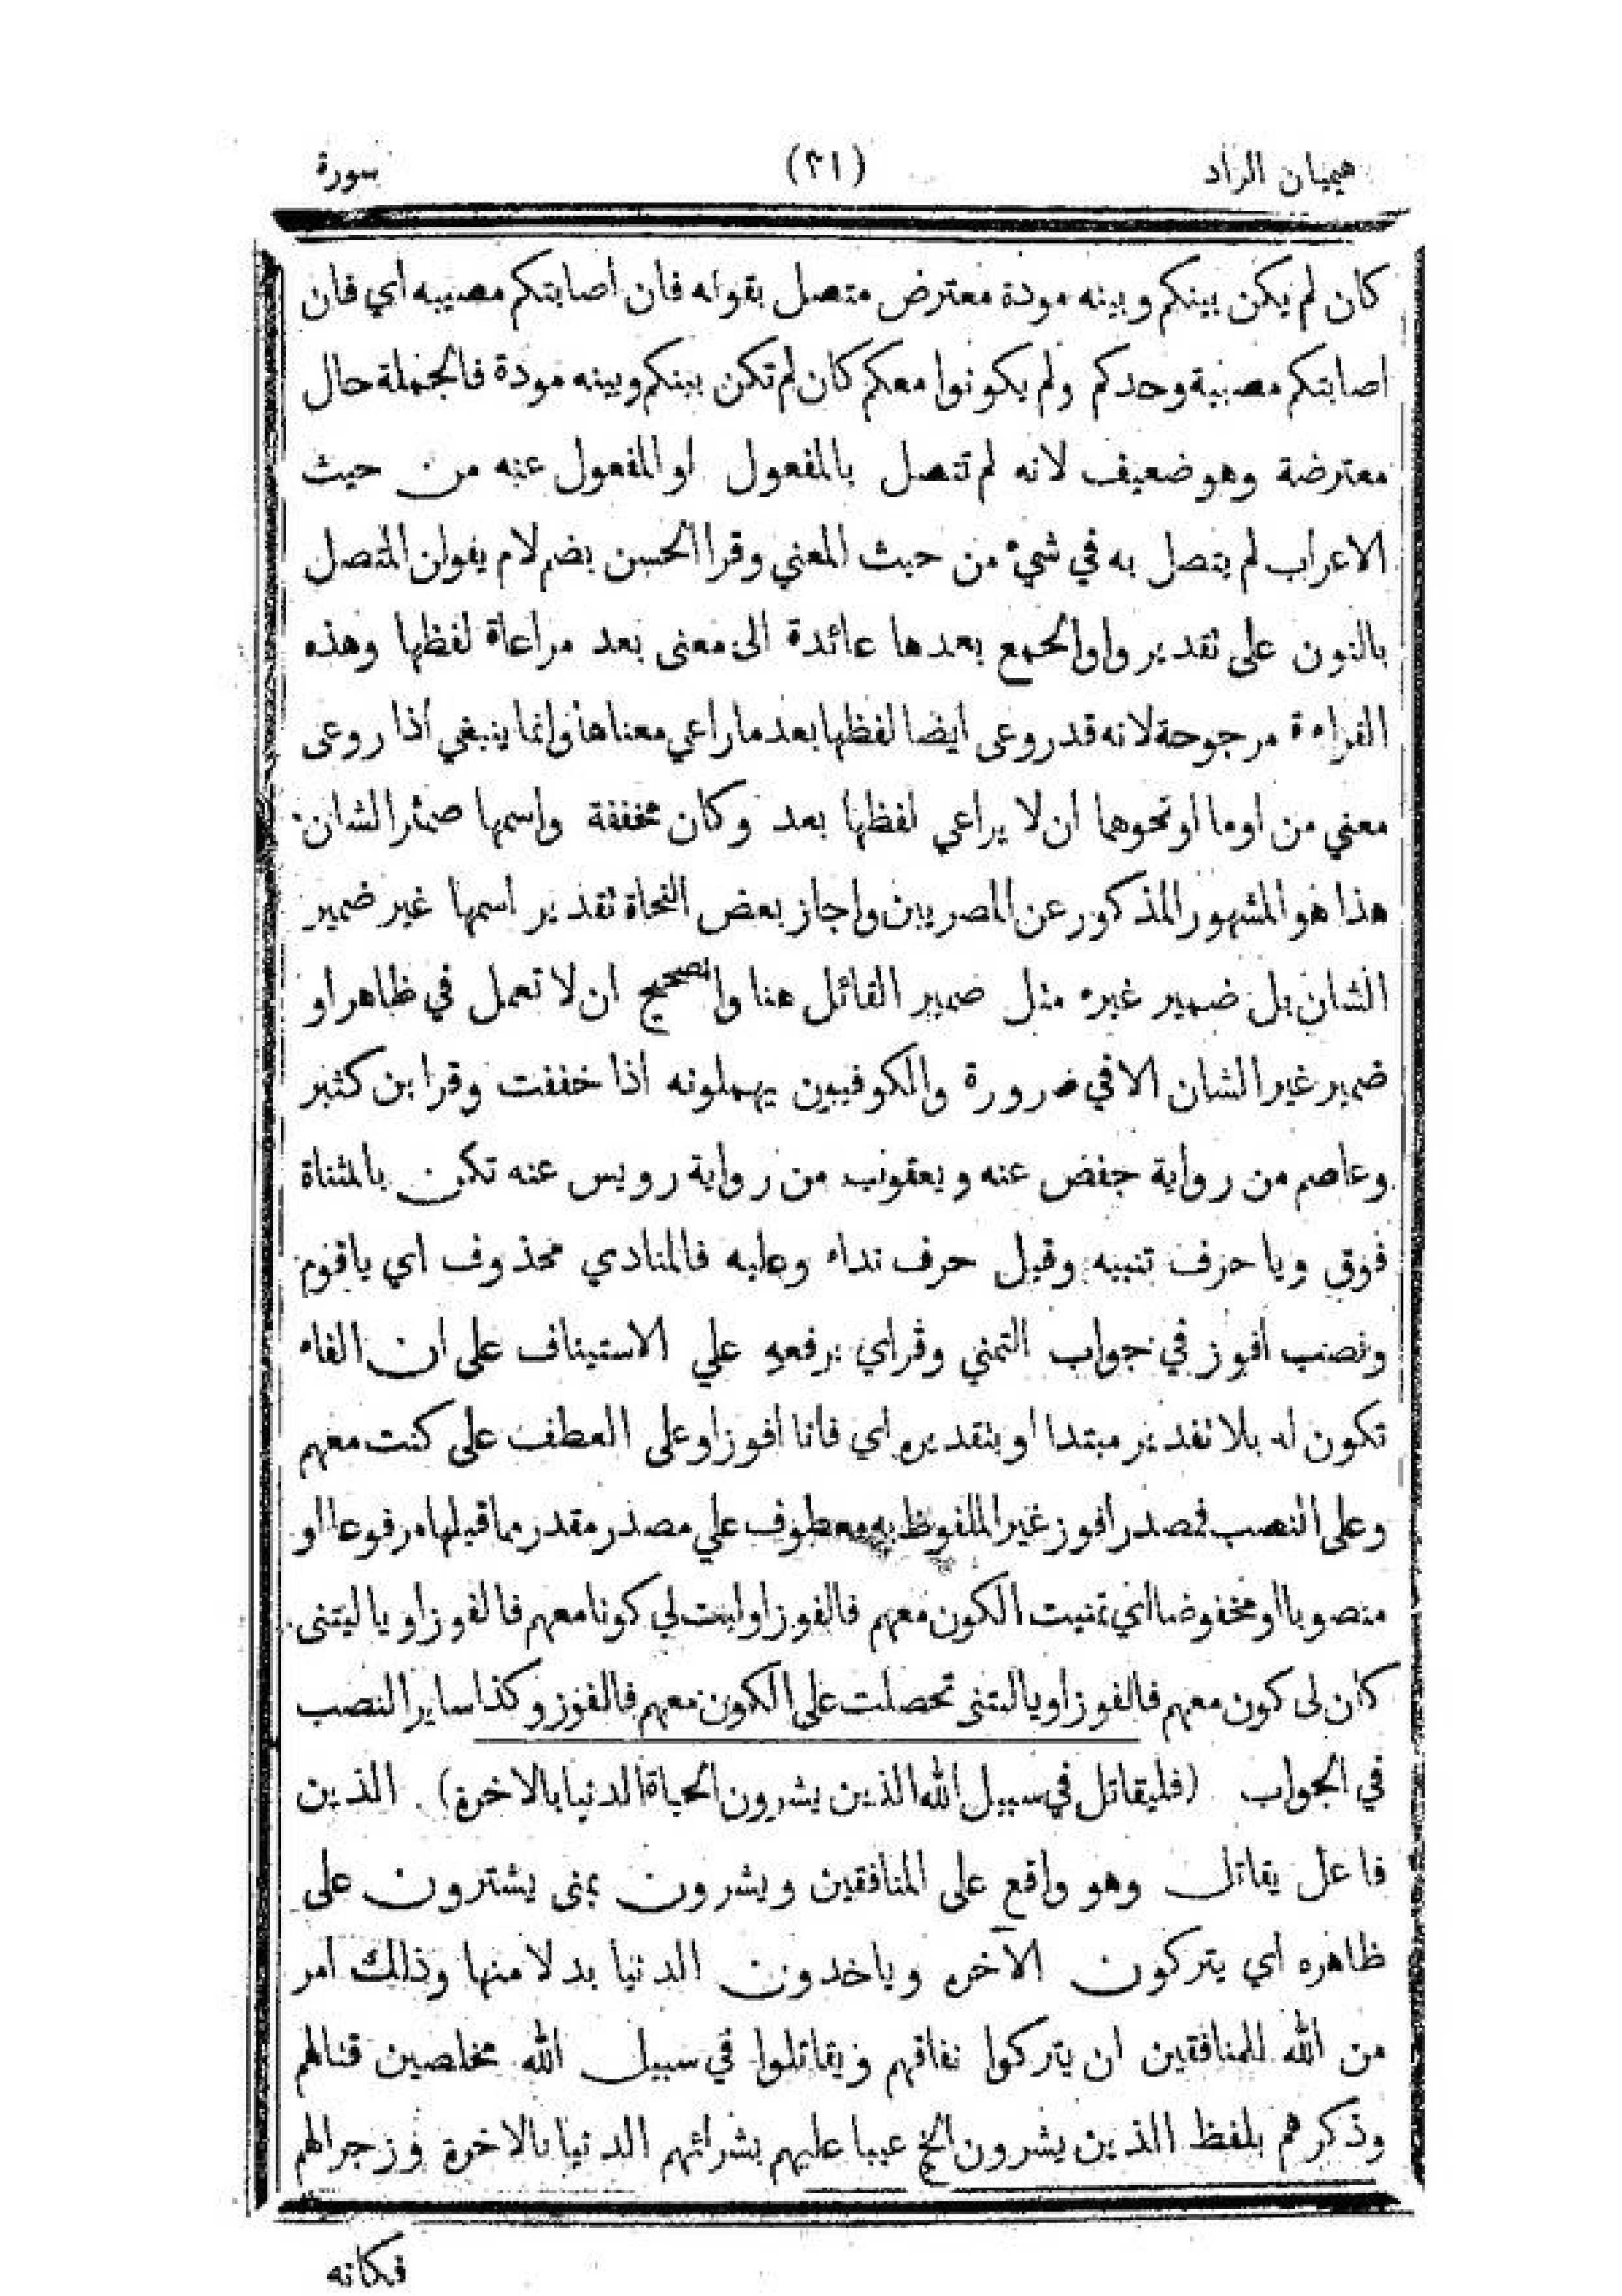 هيميان الزاد (٢١) سورة
كان لم يكن بينكم وبينه مودة معترض متصل بقوله فان أصابتكم مصيبه أي فان
اصابتكم مصيبة وحدكم ولم يكونوا معكم كان لم تكن بينكم وبينه مودة فالجملة حال
معترضة وهو ضعيف لانه لم تتصل بالمفعول او المفعول عنه من حيث
الاعراب لم يتصل به في شيء من حيث المعني وقرا الحسن بضم لام يقولن المتصل
بالنون على تقدير واو الجمع بعدها عائدة الى معنى بعد مراعاة لفظها وهذه
القراءة مرجوحة لانه قد روعى أيضا لفظها بعد ما راعي معناها وانما ينبغي أذا روعى
معني من او ما او نحوهما ان لا يراعي لفظها بعد وكان مخففة واسمها ضمير الشان
هذا هو المشهور المذكور عن المصريين واجاز بعض النحاة تقدير اسمها غير ضمير
الشان بل ضمير غيره مثل ضمير القائل هنا والصحيح ان لا تعمل في ظاهر او
ضمير غير الشان الا في ضرورة والكوفيين يهملونه أذا خففت وقرا بن كثير
وعاصم من رواية حفض عنه ويعقوب من رواية رويس عنه تكن بالمثناة
فوق ويا حرف تنبيه وقيل حرف نداء وعليه فالمنادي محذوف اي يا قوم
ونصب افوز في جواب التمني وقراي برفعه علي الاستيناف على ان الفاء
تكون له بلا تقدير مبتدا او بتقديره اي فانا افوز او على العطف على كنت معهم
وعلى النصب فمصدر أفوز غير الملفوظ به معطوف علي مصدر مقدر مما قبلها مرفوعا او
منصوبا او مخفوضا اي تمنيت الكون معهم فالفوز او ليت لي كونا معهم فالفوز او يا ليتنى
كان لى كون معهم فالفوز او يا ليتنى تحصلت على الكون معهم فالفوز وكذا ساير النصب
في الجواب (فليقاتل في سبيل الله الذين يشرون الحياة الدنيا بالاخرة) الذين
فاعل يقاتل وهو واقع على المنافقين ويشرون بمنى يشترون على
ظاهره اي يتركون الآخره وياخدون الدنيا بدلا منها وذلك امر
من الله للمنافقين ان يتركوا نفاقهم ويقاتلوا في سبيل الله مخلصين قتالهم
وذكرهم بلفظ الذين يشرون الخ عيبا عليهم بشرائهم الدنيا بالاخرة وزجرالهم
فكانه